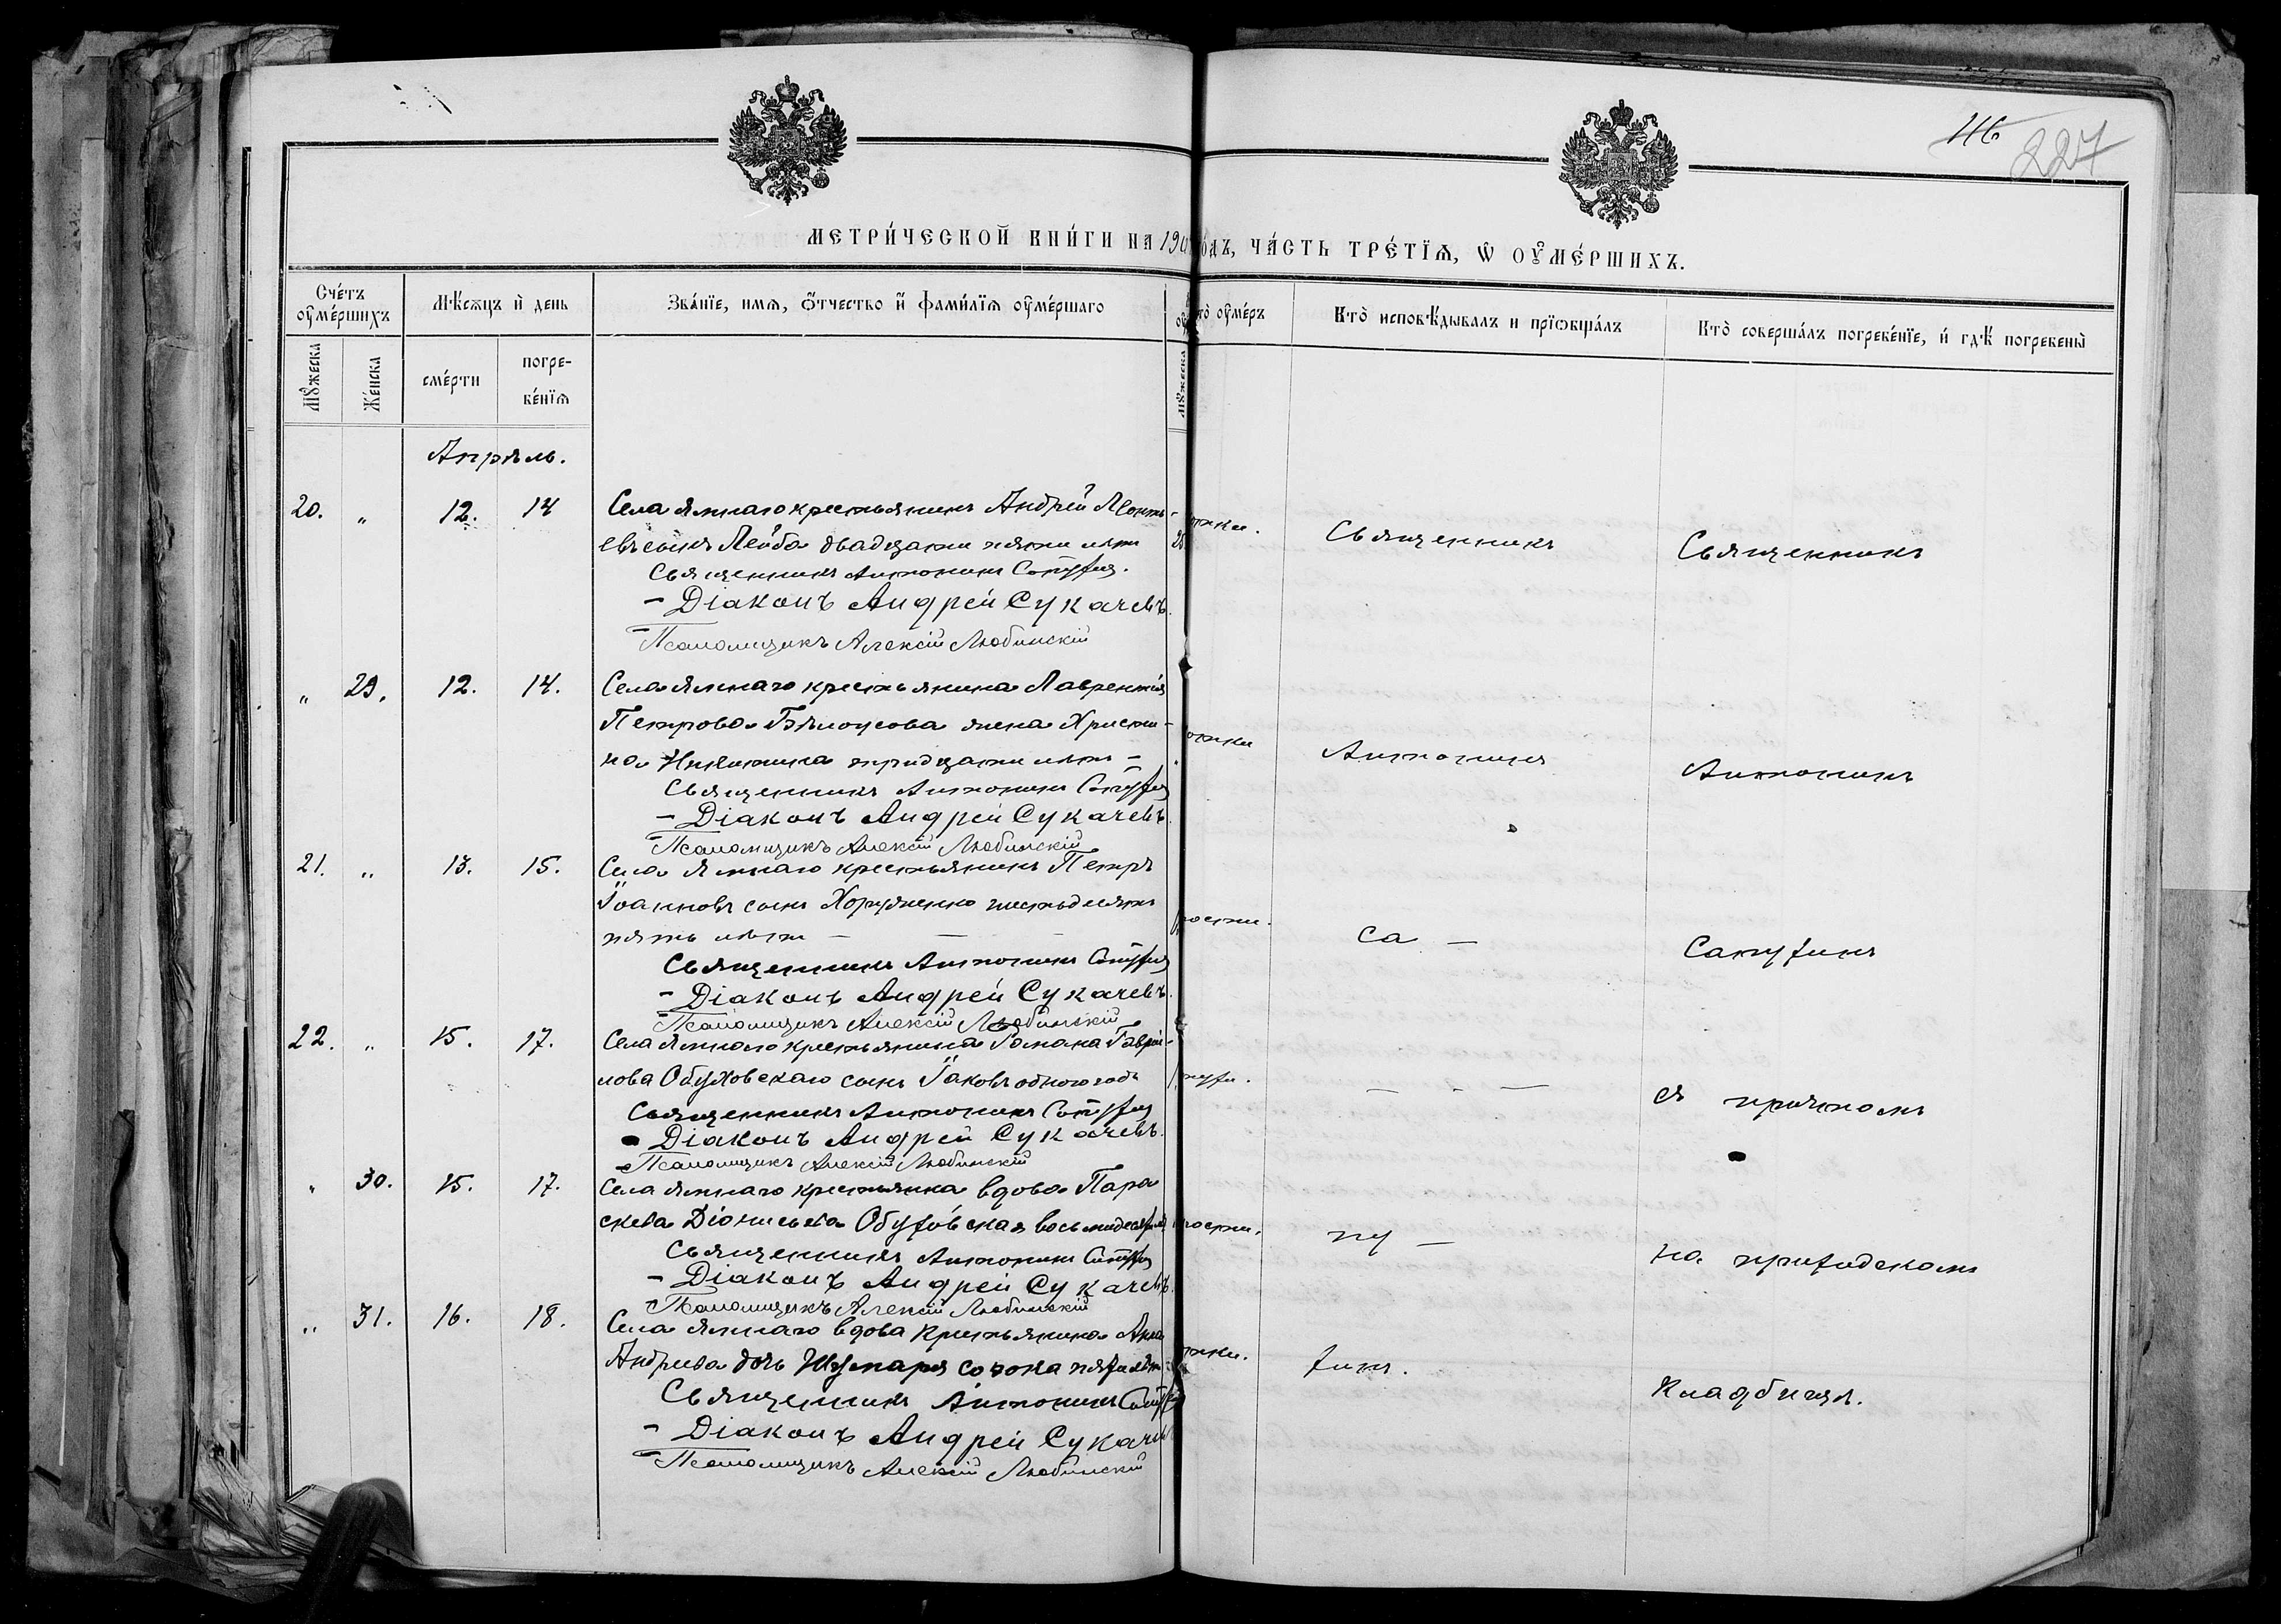 46
227
МЕТРИ́ЧЕСКОЙ КНИ́ГИ НА 190
о́дъ, ЧА́СТЬ ТРЕ́ТЇѦ, Ѡ ОУМЕ́РШИХЪ.
Сче́тъ оуме́ршихъ
Мѣ́сѧцъ и҆ день
Зва́нїе, имѧ, о҆́тчество и҆ фами́лїѧ оуме́ршаго
оуме́ръ
Кто̀ исповѣ́дывалъ и прїѡбща́лъ
Кто̀ соверша́лъ погребе́нїе, и҆ гдѣ̀ погребены̀
Мꙋжеска
Же́нска
сме́рти
погре-
бе́нїѧ
Мꙋжеска
Апрѣль.
20. „ 12. 14 Села Ямнаго крестьянинъ Андрей Леонть-
евъ сынъ Лейба двадцати пяти лѣтъ 25
Священникъ Антонинъ Сапухин.
– Діаконъ Андрей Сукачевъ.
Псаломщикъ Алексій Любинскій
Священникъ
Священникъ
„ 29. 12. 14. Села Ямнаго крестьянина Лаврентія
Петрова Бѣлоусова жена Христи-
на Никитина тридцати лѣтъ –
Священникъ Антонинъ Сапухин
– Діаконъ Андрей Сукачевъ.
Псаломщикъ Алексій Любинскій
Антонинъ
Антонинъ
21. „ 13. 15. Села Ямнаго крестьянинъ Петръ
Іоанновъ сынъ Хоруженко шестьдесятъ
пять лѣтъ – – –
Священникъ Антонинъ Сапухин
– Діаконъ Андрей Сукачевъ.
Псаломщикъ Алексій Любинскій
са –
Сапухинъ
22. „ 15. 17. Села Ямнаго крестьянина Романа Гаврiи-
лова Обуховскаго сынъ Іаковъ одного года
Священникъ Антонинъ Сапухин
Діаконъ Андрей Сукачевъ.
Псаломщикъ Алексій Любинскій
– – –
съ причтомъ
„ 30. 15. 17. Села Ямнаго крестьянка вдова Пара
скева Діонисьева Обуховская восьмидесяти
Священникъ Антонинъ Сапухин
– Діаконъ Андрей Сукачевъ.
Псаломщикъ Алексій Любинскій
пу –
на приходскомъ
„ 31. 16. 18. Села Ямнаго вдова крестьянина Анна
Андреева дочь Шумаря сорока пяти лѣт
Священникъ Антонинъ Сапухин
– Діаконъ Андрей Сукачев
Псаломщикъ Алексій Любинскій
хинъ.
Кладбищѣ.